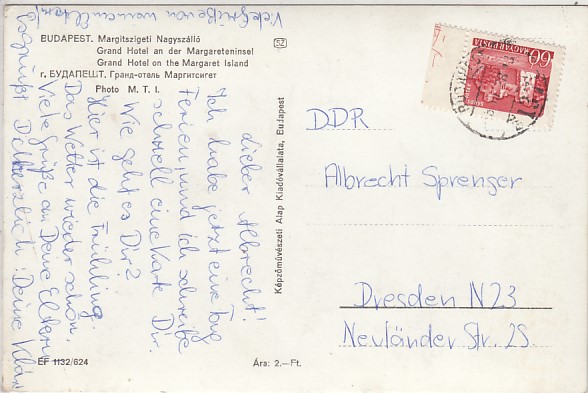 BUDAPEST. Margitszigeti Nagyszálló
Grand Hotel an der Margareteninsel
Grand Hotel on the Margaret Island
г. БУДАПЕШТ. Гранд-отель Маргитсигет
Photo M. T. I.
SZ
60
MAGYAR POSTA
BUDAPEST
lieber Albrecht!
Ich habe jetzt eine Tag
Ferien, und ich schreibe
schnell eine Karte Dir.
Wie geht es Dir?
Hier ist die Frühling.
Das Wetter wieder schön.
Viele grüße an Deine Eltern
begrüßt Dich herzlich: Deine Klári
Viele grüße von meinen Eltern!
Képzőművészeti Alap Kiadóvállalata, Budapest
DDR
Albrecht Sprenger
Dresden N23
Neuländer Str. 25.
EF 1132/624
Ára: 2.—Ft.